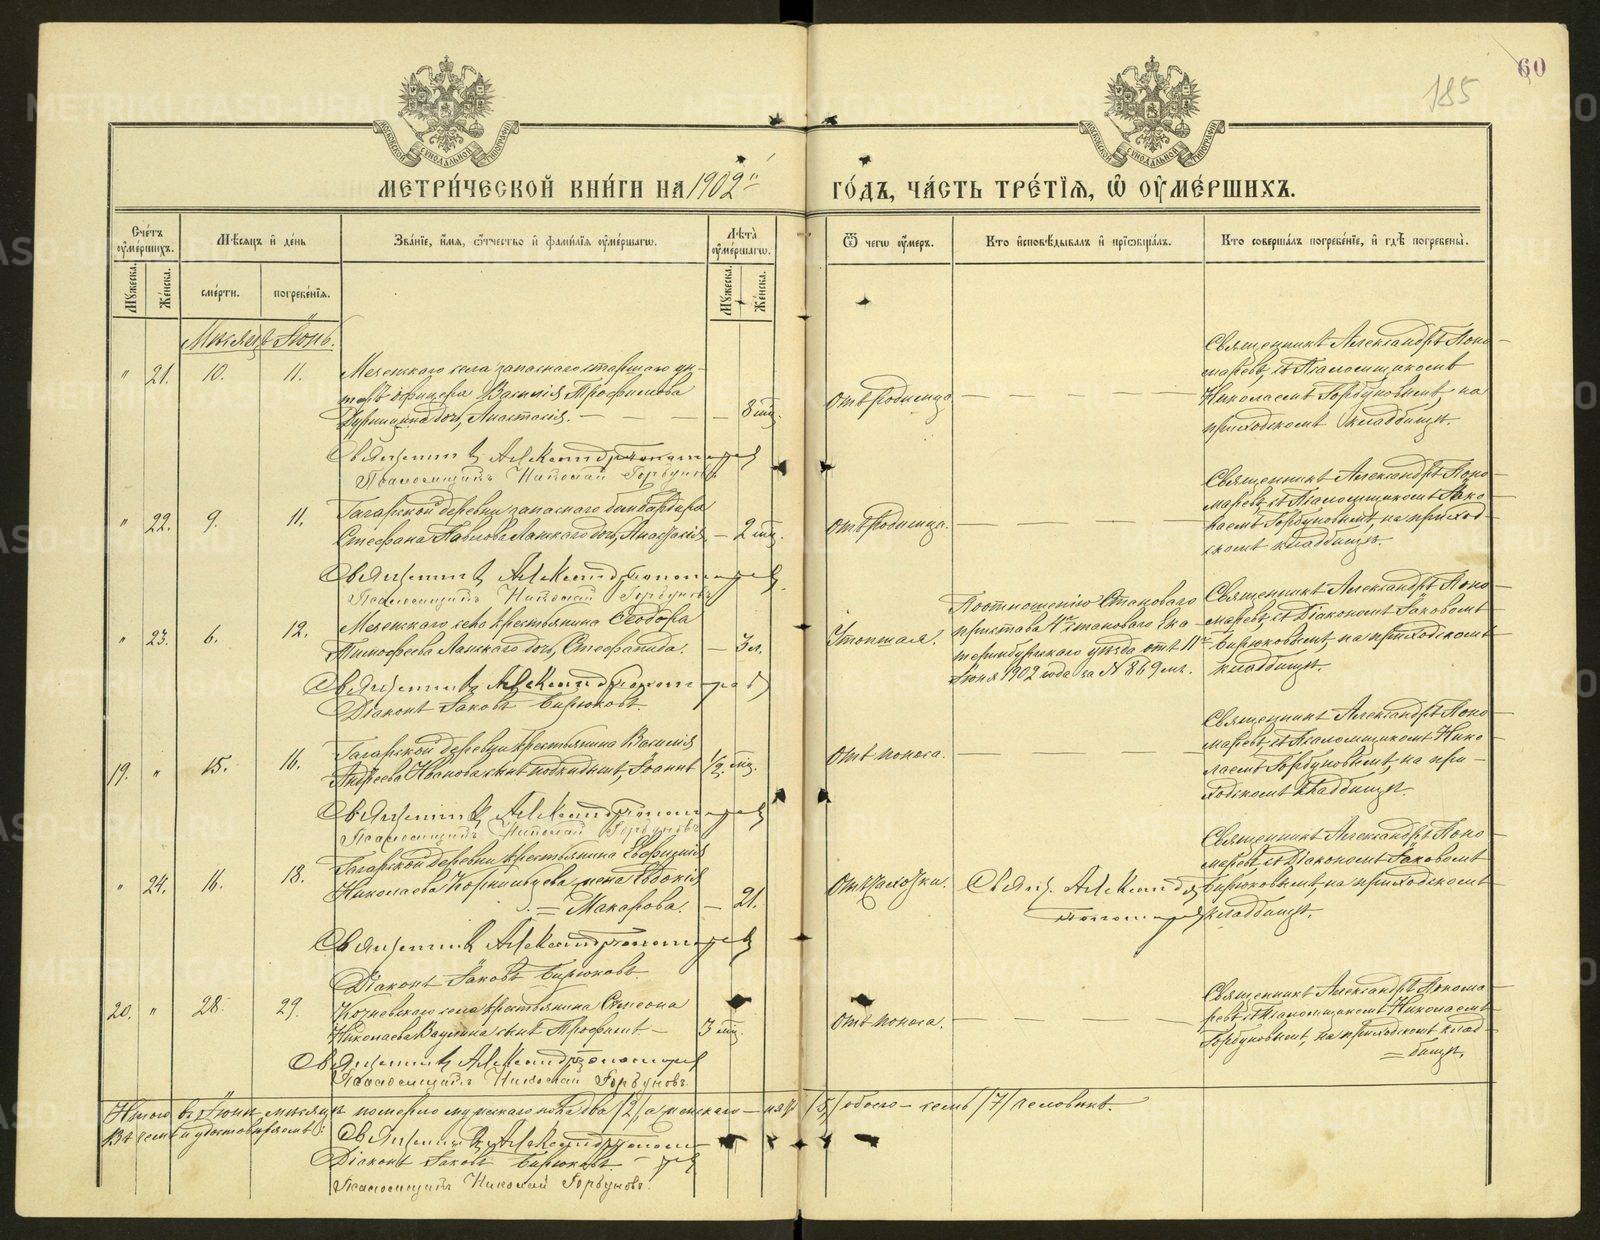 60
185
МЕТРИ́ЧЕСКОЙ КНИ́ГИ НА 1902 ГО́ДЪ, ЧА́СТЬ ТРЕ́ТЇѦ, Ѡ ОУМЕ́РШИХЪ.
Сче́тъ оуме́ршихъ.
Мѣ́сяцъ и де́нь
Зва́нїе, и́мя, о́тчество и фами́лїя оуме́ршагѡ.
Лѣта̀ оуме́ршагѡ.
Ѿ чегѡ̀ оу́меръ.
Кто̀ и҆сповѣ́дывалъ и҆ прїѡбща́лъ.
Кто̀ соверша́лъ погребе́нїе, и҆ гдѣ̀ погребены̀.
Му́жеска.
Же́нска.
сме́рти.
погребе́нїя.
Му́жеска.
Же́нска.
Мѣсяцъ Іюнь.
" 21. 10. 11.
Мезенскаго села запаснаго старшаго ун-
теръ офицера Василія Трофимова
дочь, Анастасія. — — — 8 мѣс.
Отъ родимца
Священникъ Александръ Поно-
маревъ, съ Псаломщикомъ
Николаемъ Горбуновымъ, на
приходскомъ кладбищѣ.
Священникъ Александръ Пономаревъ
Псаломщикъ Николай Горбуновъ
" 22. 9. 11.
Гагарской деревни запаснаго бомбардира
Стефана Павлова Ланскаго дочь, Анастасія — 2 мѣс.
Отъ родимца.
Священникъ Александръ Поно-
маревъ, съ Псаломщикомъ Нико-
лаемъ Горбуновымъ, на приход-
скомъ кладбищѣ.
Священникъ Александръ Пономаревъ.
Псаломщикъ Николай Горбуновъ
" 23. 6. 12.
Мезенскаго села крестьянина Ѳеодора
Тимофеева Ланскаго дочь, Стефанида. — 3 л.
Утопшая.
По отношенію Становаго
пристава 4го стана Ека-
теринбургскаго уѣзда отъ 11го
Іюня 1902 года за № 869мъ.
Священникъ Александръ Поно-
маревъ, съ Діакономъ Іаковомъ
Бирюковымъ, на приходскомъ
кладбищѣ.
Священникъ Александръ Пономаревъ
Діаконъ Іаковъ Бирюковъ.
19. " 15. 16.
Гагарской деревни крестьянина Василія
Андреева Иванова сынъ подкидышъ, Іоаннъ ½ мѣс.
Отъ поноса.
Священникъ Александръ Поно-
маревъ, съ Псаломщикомъ Нико-
лаемъ Горбуновымъ, на при-
ходскомъ кладбищѣ.
Священникъ Александръ Пономаревъ
Псаломщикъ Николай Горбуновъ
" 24. 16. 18.
Гагарской деревни крестьянина
Николаева жена Евдокія
Макарова. — 21.
Отъ чахотки.
Свящ. Александръ
Пономаревъ
Священникъ Александръ Поно-
маревъ съ Діакономъ Іаковомъ
Бирюковымъ на приходскомъ
кладбищѣ.
Священникъ Александръ Пономаревъ
Діаконъ Іаковъ Бирюковъ
20. " 28. 29.
села крестьянина Симеона
Николаева сынъ Трофимъ — 3 мѣс.
Отъ поноса.
Священникъ Александръ Понома-
ревъ съ Псаломщикомъ Николаемъ
Горбуновымъ, на приходскомъ клад-
бищѣ.
Священникъ Александръ Пономаревъ
Псаломщикъ Николай Горбуновъ.
Итого въ Іюнѣ мѣсяцѣ померло мужескаго пола два /2/, а женскаго — пять /5/, обоего — семь /7/ человѣкъ.
Въ чемъ и удостовѣряемъ:
Священникъ Александръ Пономаревъ
Діаконъ Іаковъ Бирюковъ.
Псаломщикъ Николай Горбуновъ.